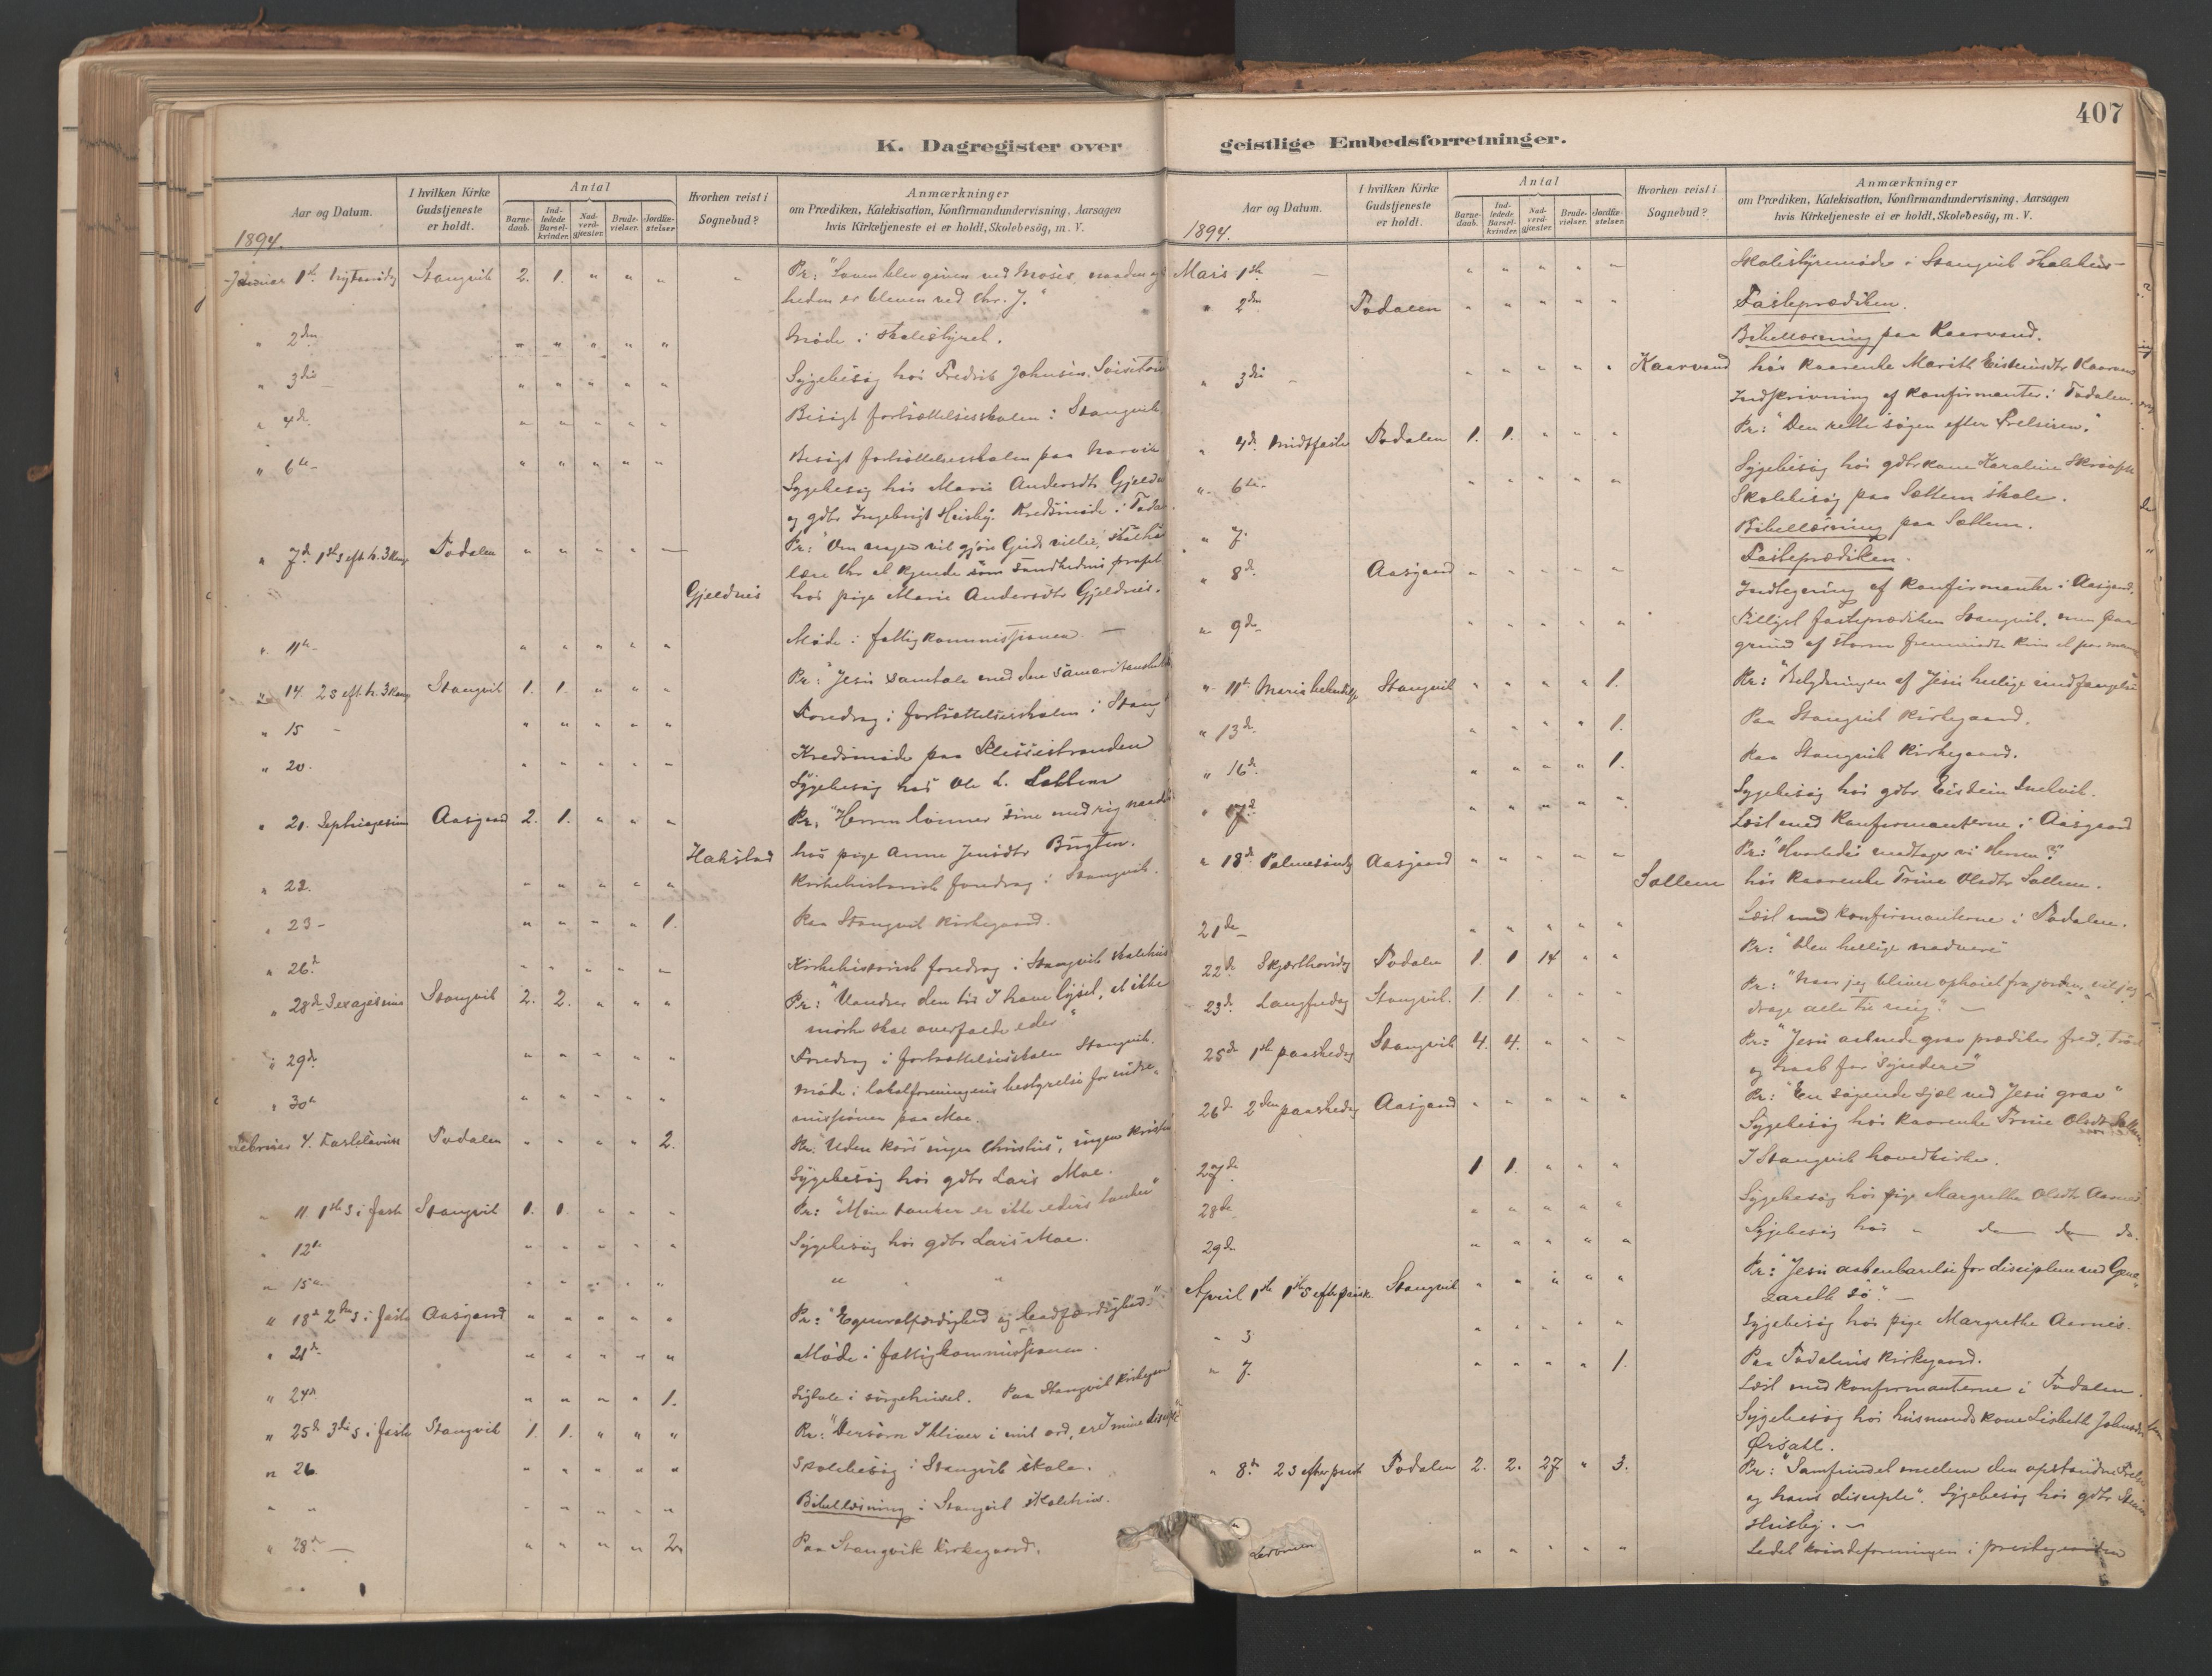 407
K. Dagregister over geistlige Embedsforretninger.
Aar og Datum.
I hvilken Kirke Gudstjeneste er holdt.
Antal
Barnedaab.
Indledede Barselkvinder.
Nadverdgjæster.
Brudevielser.
Jordfæstelser
Hvorhen reist i Sognebud?
Anmærkninger
om Prædiken, Katekisation, Konfirmandundervisning, Aarsagen
hvis Kirketjeneste ei er holdt, Skolebesög, m. V.
1894.
Januar 1ste Nytaarsdag Stangvik 2. 1. " " " " Pr: "Loven blev given ved Moses, naaden og
heden er bleven ved Chr. J."
" 2den " " " " " Møde i skolestyret.
" 3die " " " " " Sygebesøg hos Fredrik Johnsen
" 4de " " " " " Besøgt fortsættelsesskolen i Stangvik
" 6te " " " " " Besøgt fortsættelsesskolen paa
Sygebesøg hos Marie Andersdtr Gjeldn
og gdbr Ingebrigt Husby. Kredsmøde i Toda
" 7de 1ste s eft. h. 3 Kong Todalen " " " " — Pr: "Om nogen vil gjøre Guds villie, skal h
lære Chr at kjende som sandhedens profet
Gjeldnes hos pige Marie Andersdtr Gjeldnes.
" 11te " " " " " Møde i fattigkommissionen. —
" 14. 2 s eft. h. 3 Kong Stangvik 1. 1. " " " Pr: "Jesu samtale med den samaritanske
" 15 - " " " " " Foredrag i fortsættelsesskolen i Stang
" 20. " " " " " Kredsmøde paa
Sygebesøg hos Ole L. Sættem
" 21. Septuagesima Aasgaard 2. 1. " " " Pr. "Herren lønner sine med rig naade
Halsstad hos pige Anne Jensdtr Bugten.
" 22. " " " " " Kirkehistorisk foredrag i Stangvik.
" 23 - " " " " 1. Paa Stangvik kirkegaard.
" 26de " " " " " Kirkehistorisk foredrag i Stangvik skolehus
" 28de Sexagesima Stangvik 2. 2. " " " Pr: "Vandrer den tid I have lyset, at ikke
mørke skal overfalde eder"
" 29de " " " " " Foredrag i fortsættelsesskolen Stangvik.
" 30te " " " " " Møde i lokalforeningens bestyrelse for indre-
missionen paa Moe.
Februar 4. Fastelavns Todalen " " " " 2. Pr. "Uden kors ingen Christus, ingen kristen
Sygebesøg hos gdbr Lars Moe.
" 11 1ste s i faste Stangvik 1. 1. " " " Pr: "Mine tanker er ikke eders tanker"
" 12te " " " " " Sygebesøg hos gdbr Lars Moe.
" 15de " " " " " " " "
" 18de 2den s i faste Aasgaard " " " " " Pr: "Egenretfærdighed og bodfærdighed."
" 21de " " " " " Møde i fattigkommissionen.
" 24de " " " " 1. Ligtale i sørgehuset. Paa Stangvik kirkegaard
" 25de 3die s i faste Stangvik 1. 1. " " " Pr: "Dersom I bliver i mit ord, er I mine discipl
" 26 " " " " " Skolebesøg i Stangvik skole.
" " " " " " " Bibellæsning i Stangvik skolehus.
" 28de — " " " " 2. Paa Stangvik kirkegaard.
Aar og Datum.
I hvilken Kirke Gudstjeneste er holdt.
Antal
Barnedaab.
Indledede Barselkvinder.
Nadverdgjæster.
Brudevielser.
Jordfæstelser.
Hvorhen reist i Sognebud?
Anmærkninger
om Prædiken, Katekisation, Konfirmandundervisning, Aarsagen
hvis Kirketjeneste ei er holdt, Skolebesög, m. V.
1894.
Marts 1ste — " " " " " Skolestyremøde i Stangvik skolehus —
" 2den Todalen " " " " " Fasteprædiken.
Bibellæsning paa Kaarvand.
" 3die - " " " " " Kaarvand hos kaarenke Marith Eisteinsdtr Kaarvand
Indskrivning af konfirmanter i Todalen.
" 4de midtfaste Todalen 1. 1. " " " Pr: "Den rette søgen efter Frelseren."
" 6te " " " " " Sygebesøg hos gdbrkone Karoline
Skolebesøg paa Sættem skole.
" 7. Bibellæsning paa Sættem.
" 8de Aasgaard " " " " " Fasteprædiken.
Indtegning af konfirmanter i Aasgaard.
" 9de " " " " " Tillyst fasteprædiken Stangvik, men paa
grund af storm fremmødte kun et par
" 11te Marie bebudelse Stangvik " " " " 1. Pr: "Betydningen af Jesu hellige undfangelse
" 13de " " " " 1. Paa Stangvik kirkegaard.
" 16de " " " " 1. Paa Stangvik kirkegaard.
Sygebesøg hos gdbr. Eistein
" 17de " " " " " Læst med konfirmanterne i Aasgaard
" 18de Palmesøndag Aasgaard " " " " " Pr: "Hvorledes modtager vi Herren?"
Sættem hos kaarenke Trine Olsdtr Sættem.
21de " " " " " Læst med konfirmanterne i Todalen.
22de Skjærthorsdag Todalen 1. 1 14 " " Pr: "Den hellige nadvere"
23de Langfredag Stangvik. 1. 1. " " " Pr: "Naar jeg bliver ophøiet fra jorden, vil jeg
drage alle til mig." —
25de 1ste paaskedag Stangvik 4. 4. " " " Pr: "Jesu aabnede grav prædiker fred, trøst
og haab for syndere"
26de 2den paaskedag Aasgaard " " " " " Pr: "En søgende sjæl ved Jesu grav"
Sygebesøg hos kaarenke Trine Olsdtr Sættem.
27de 1 1. " " " I Stangvik hovedkirke.
28de " " " " " Sygebesøg hos pige Margrethe Olsdtr Aarnes
29de " " " " " Sygebesøg hos " do do do.
April 1ste 1ste s efter paask. Stangvik " " " " " Pr: "Jesu aabenbarelse for disciplene ved Gene-
zareth sø". —
" 3 " " " " " Sygebesøg hos pige Margrethe Aarnes.
" 7. " " " " 1. Paa Todalens kirkegaard.
Læst med konfirmanterne i Todalen.
Sygebesøg hos husmandskone Lisbeth Johns
Ørsahl.
" 8de 2 s efter paask Todalen 2. 2. 27 " 3. Pr: "Samfundet mellem den opstandne Frelser
og hans disciple". Sygebesøg hos gdbr
Husby. —
" " " " " Ledet kvindeforeningen i prestegaarden